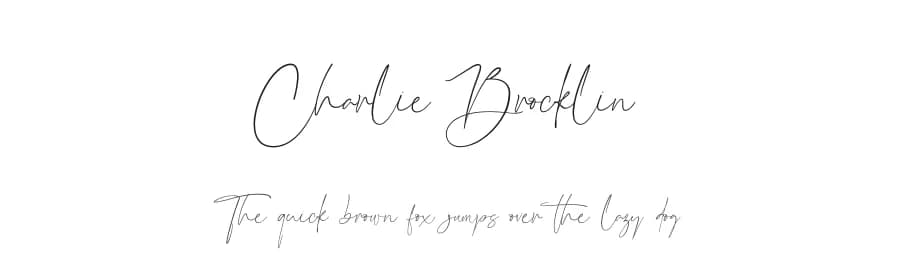 Charlie Brocklin
The quick brown fox jumps over the lazy dog